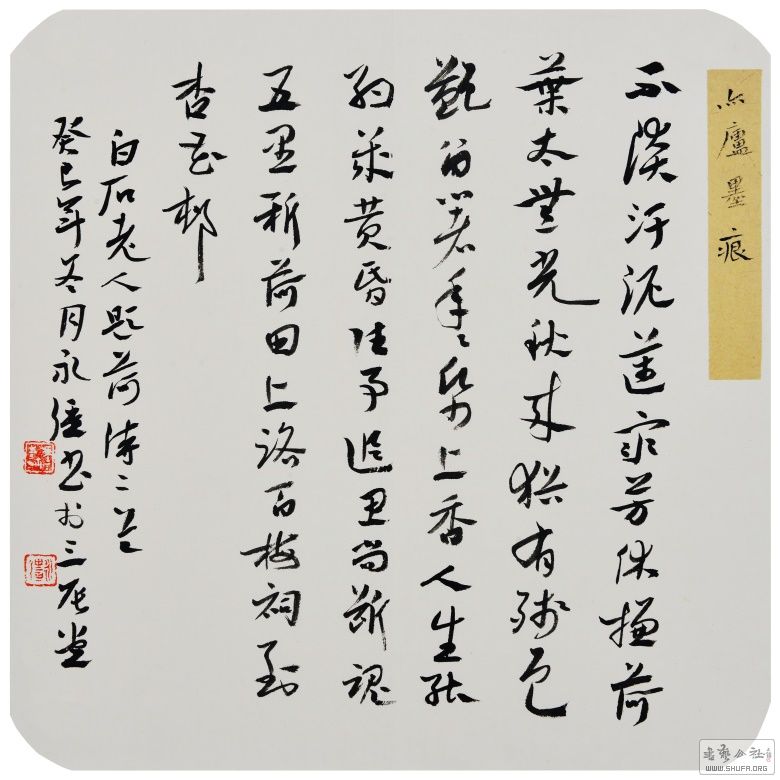 廬墨痕
不染汙泥邁眾芳休嫌荷
葉太無光秋來猶有殘花
艷留著年年紙上香人生能
約幾黃昏往事追思尚斷魂
五里新荷田上路百梅祠到
杏花邨
白石老人題荷詩二首
癸巳年冬月永強書於三堂
書藝公社
WWW.SHUFA.ORG